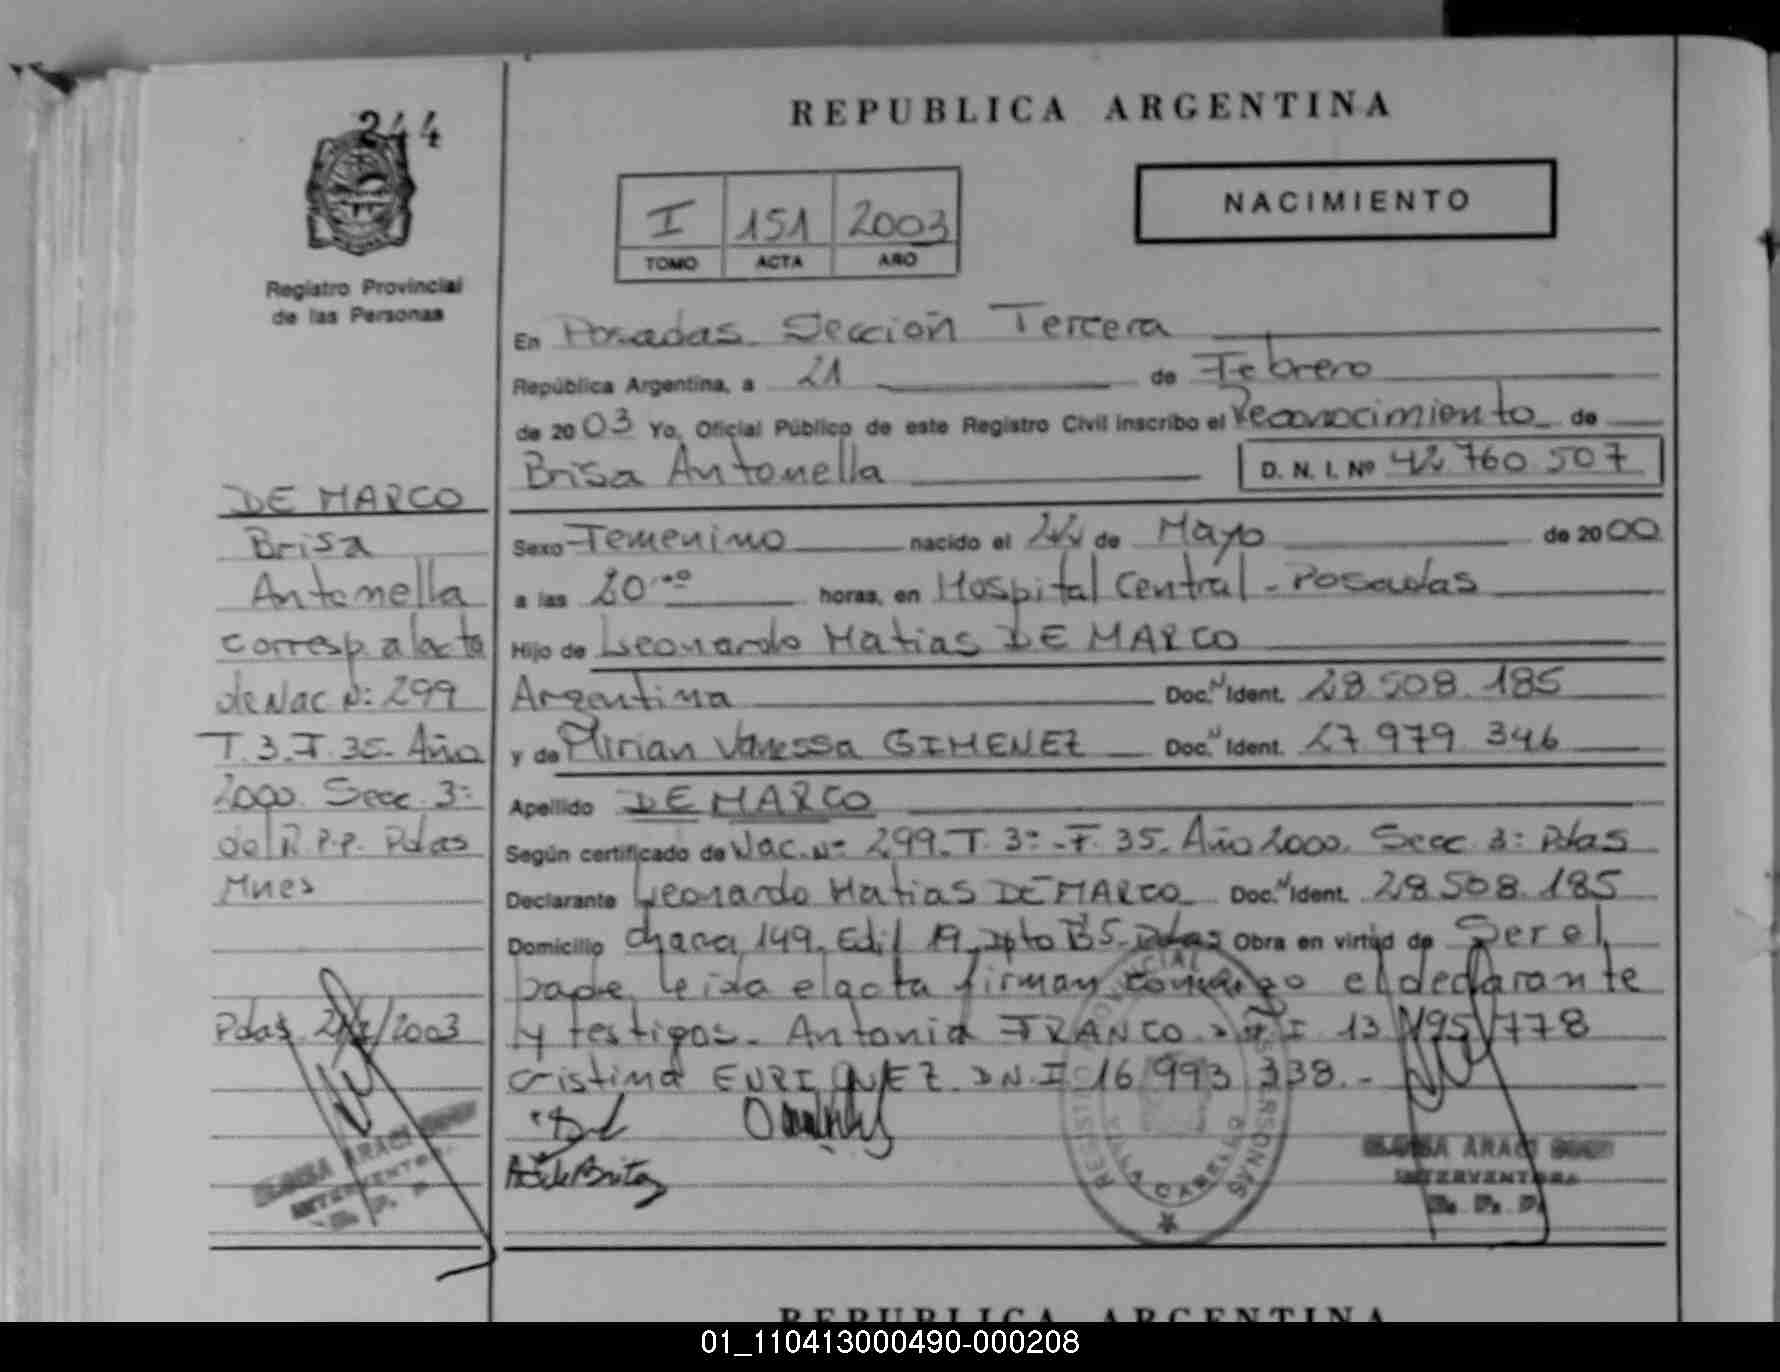 244
REPUBLICA ARGENTINA
NACIMIENTO
I 151 2003
TOMO ACTA AÑO
Registro Provincial
de las Personas
En Posadas Sección Tercera
República Argentina, a 21 de Febrero
de 2003 Yo, Oficial Público de este Registro Civil inscribo el Reconocimiento de
Brisa Antonella D. N. I. Nº 42 760 507
Sexo Femenino nacido el 22 de Mayo de 2000
a las 20 horas, en Hospital Central - Posadas
Hijo de Leonardo Matias DE MARCO
Argentina Doc. N Ident. 28 508 185
y de Mirian Vanessa GIMENEZ Doc. N Ident. 27 979 346
Apellido DE MARCO
Según certificado de Nac. Nº 299. T. 3º - F. 35. Año 2000. Secc. 3º Pdas
Declarante Leonardo Matias DE MARCO Doc. N Ident. 28.508.185
Domicilio chacra 149. Edif 19. Dpto B5. Pdas Obra en virtud de Ser el
padre, leida el acta firman conmigo el declarante
y testigos. Antonia FRANCO D.N.I 13 195 778
cristina ENRIQUEZ D.N.I 16 993 338.-
DE MARCO
Brisa
Antonella
corresp. al acta
de Nac N: 299
T. 3. F. 35. Año
2000. Secc. 3º
del R.P.P. Pdas
Mnes
Pdas 21/2/2003
ARACI
INTERVENTORA
R. P. P.
REGISTRO PROVINCIAL PERSONAS
VILLA CABELLO
ARACI
INTERVENTORA
R. P. P.
REPUBLICA ARGENTINA
01_110413000490-000208